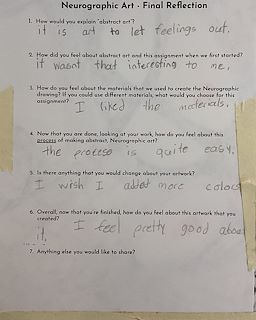 Neurographic Art - Final Reflection
1. How would you explain "abstract art"?
it is art to let feelings out.
2. How did you feel about abstract art and this assignment when we first started?
it wasnt that interesting to me.
3. How do you feel about the materials that we used to create the Neurographic
drawing? If you could use different materials, what would you choose for this
assignment?
I liked the materials.
4. Now that you are done, looking at your work, how do you feel about this
process of making abstract, Neurographic art?
the process is quite easy.
5. Is there anything that you would change about your artwork?
I wish I added more colors
6. Overall, now that you're finished, how do you feel about this artwork that you
created?
I feel pretty good about
it.
7. Anything else you would like to share?